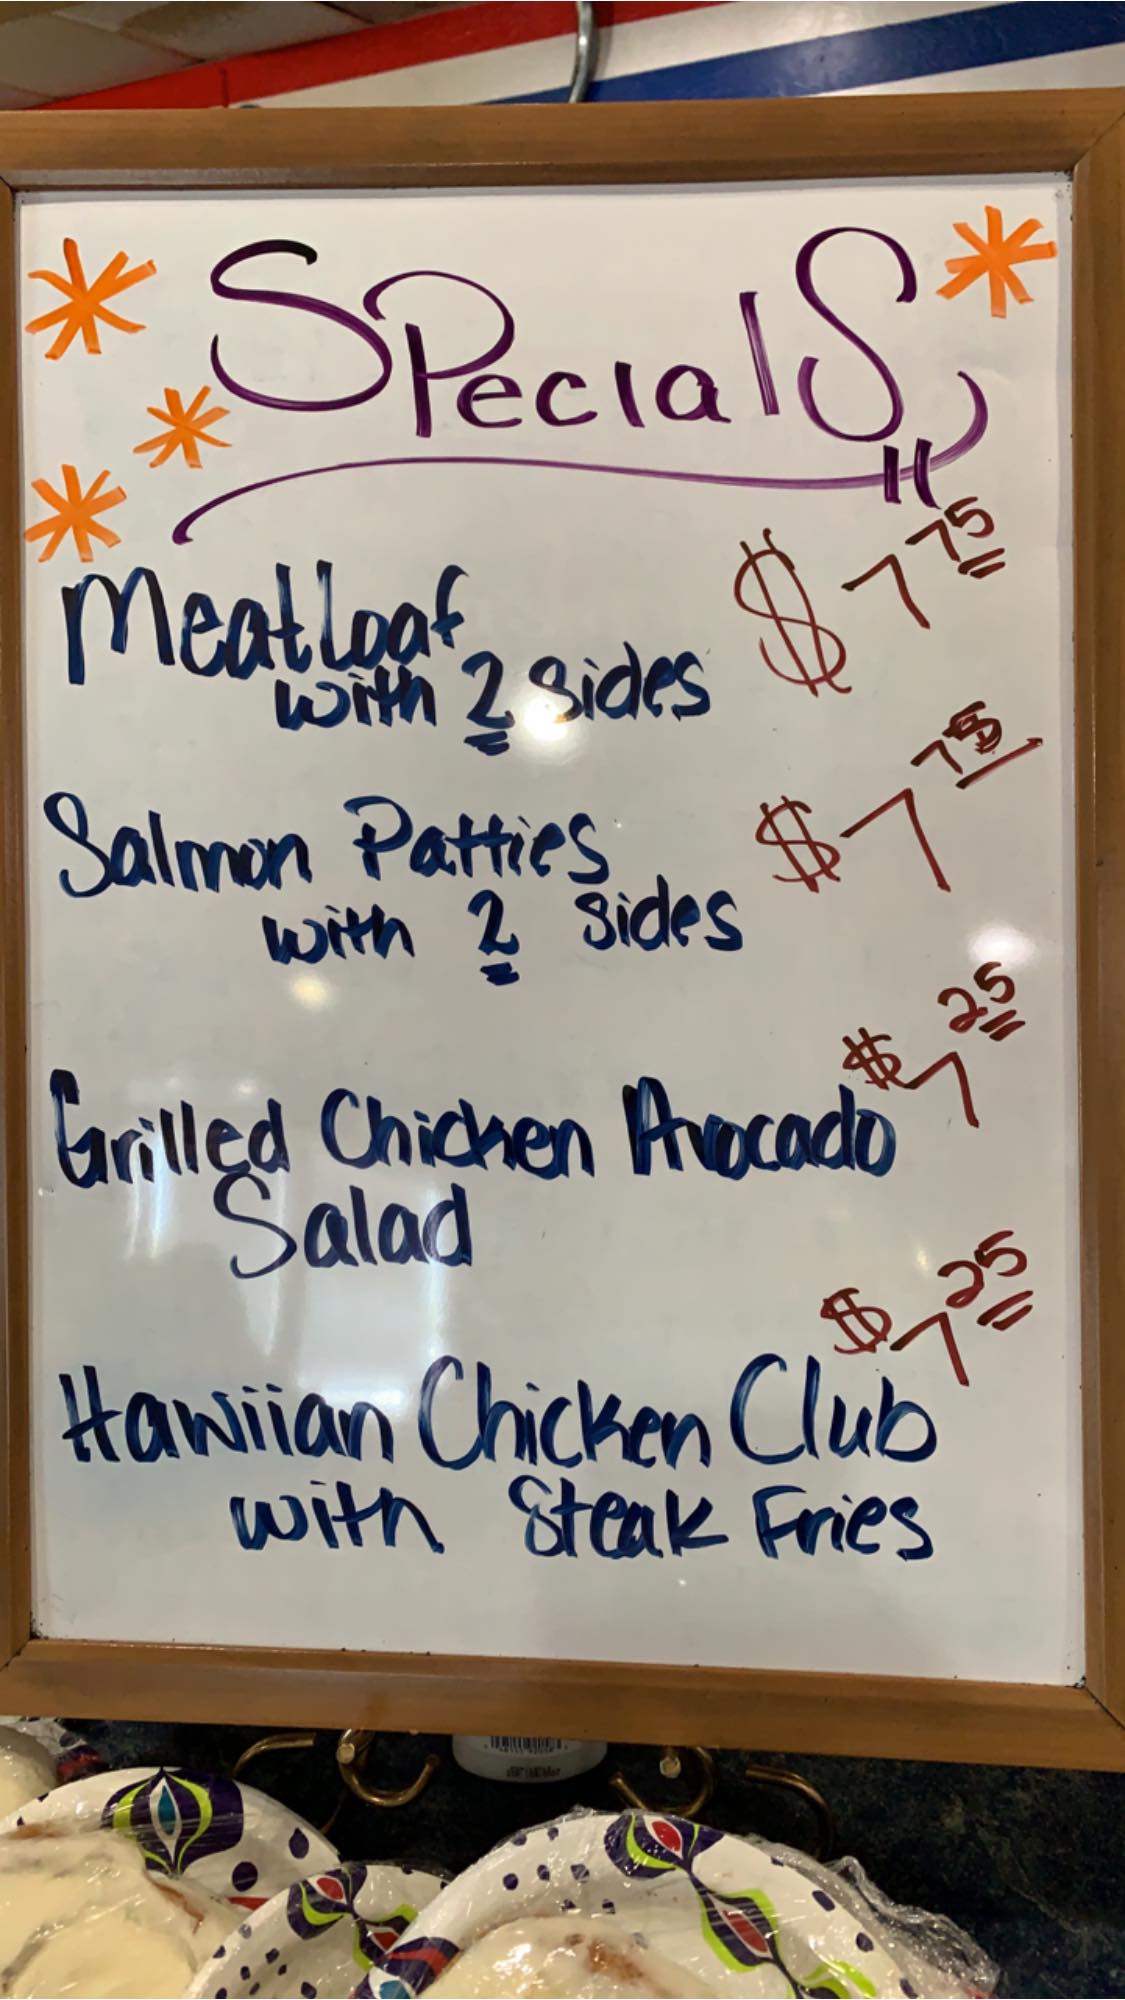 Specials
Meatloaf $7 75
with 2 sides
Salmon Patties $7 75
with 2 sides
Grilled Chicken Avocado $7 25
Salad
Hawiian Chicken Club $7 25
with Steak Fries